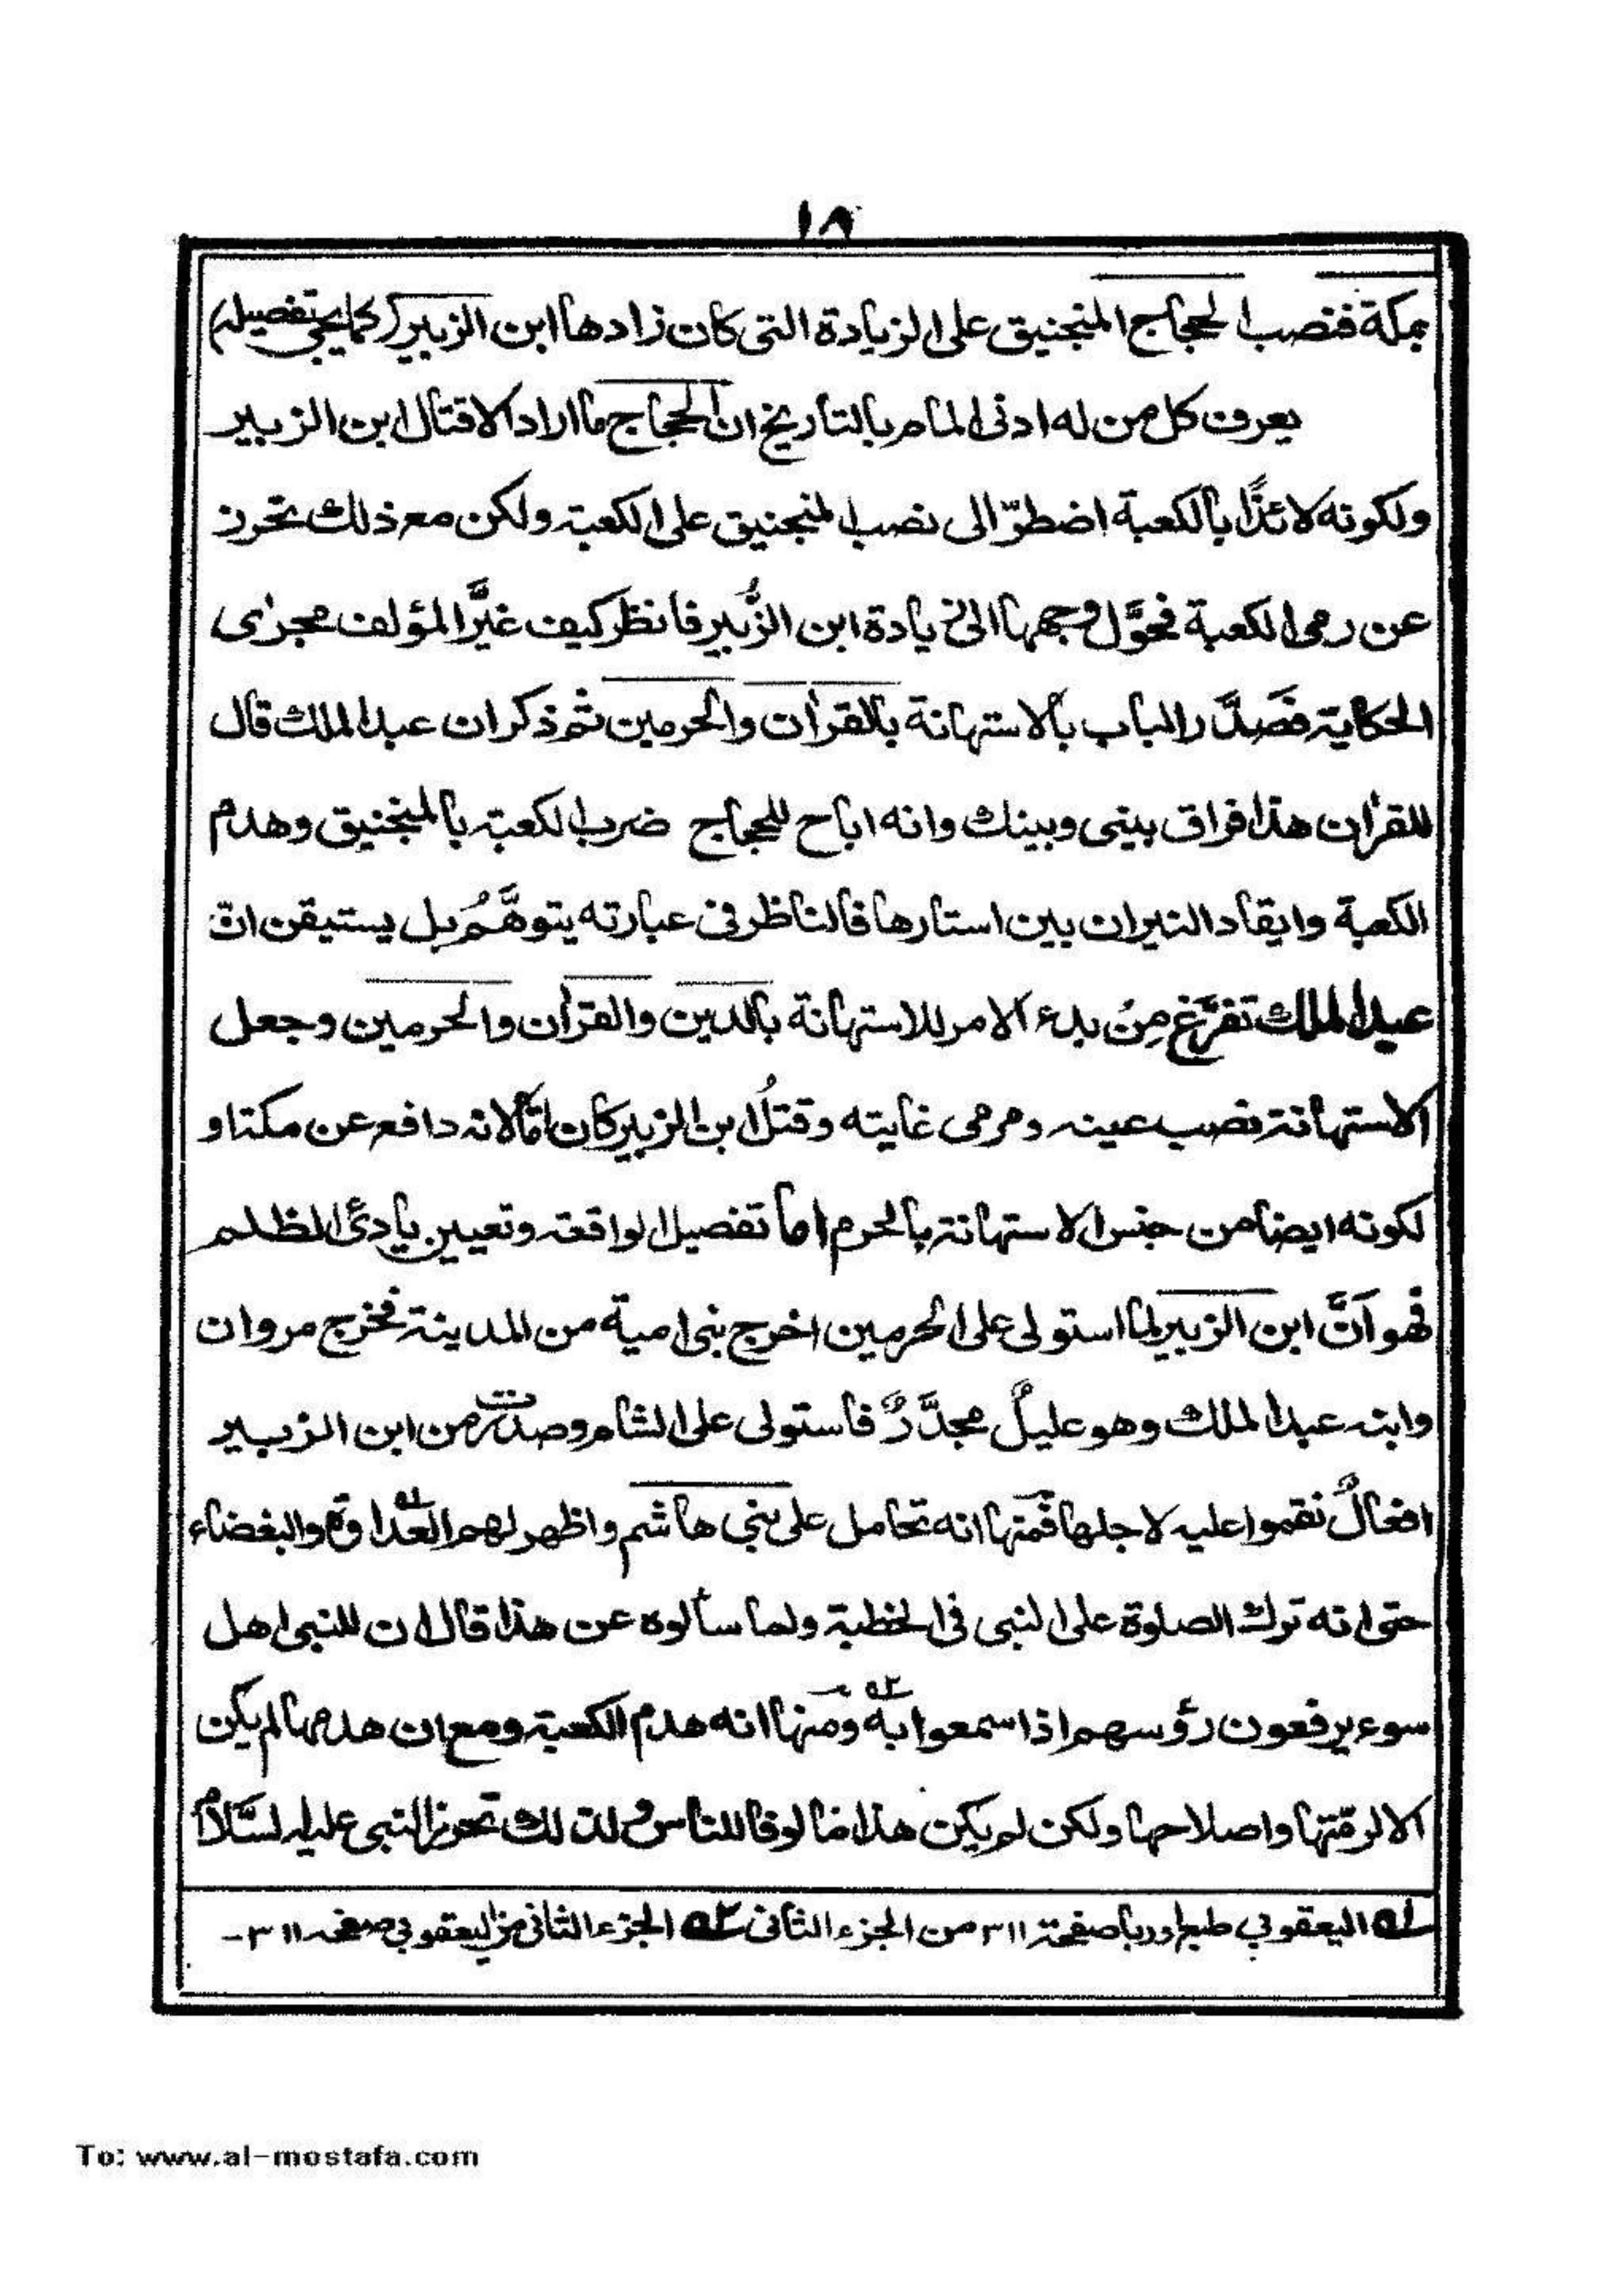 ١٨
بمكة فنصب الحجاج المنجنيق على الزيادة التى كان زادها ابن الزبير (كما يجئ تفصيله)
يعرف كل من له ادنى المام بالتاريخ ان الحجاج ما اراد الا قتال ابن الزبير
ولكونه لائذًا بالكعبة اضطرّ الى نصب المنجنيق على الكعبة ولكن مع ذلك تحرز
عن رمى الكعبة فحوَّل وجهها الى زيادة ابن الزُّبير فانظر كيف غيَّر المؤلف مجرى
الحكاية فصَدَّر الباب بالاستهانة بالقرأن والحرمين ثم ذكر ان عبد الملك قال
للقرأن هذا فراق بينى وبينك وانه اباح للحجاج ضرب الكعبة بالمنجنيق وهدم
الكعبة وايقاد النيران بين استارها فالناظر فى عبارته يتوهَّمُ بل يستيقن انّ
عبد الملك تفرَّغ مِنْ بدء الامر للاستهانة بالدين والقرأن والحرمين وجعل
الاستهانة نصب عينه ومرمى غايته وقتلُ ابن الزبير كان امّا لانه دافع عن مكة او
لكونه ايضا من جنس الاستهانة بالحرم اما تفصيل الواقعة وتعيين بادئ الظلم
فهو اَنَّ ابن الزبير لما استولى على الحرمين اخرج بنى امية من المدينة فخرج مروان
وابنه عبد الملك وهو عليلٌ مجدَّرٌ فاستولى على الشام وصدرت من ابن الزبير
افعالٌ نقموا عليه لاجلها فمنها انه تحامل على بنى هاشم واظهر لهم العداوة والبغضاء
حتى انه ترك الصلوة على النبى فى الخطبة ولما سألوه عن هذا قال ان للنبى اهل
سوء يرفعون رؤسهم اذا سمعوا به ومنها انه هدم الكعبة ومع ان هدمها لم يكن
الا لرمّتها واصلاحها ولكن لم يكن هذا مالوفا للناس ولذلك تحرز النبى عليه السَّلام
لـه اليعقوبي طبع اوربا صفحة ٣١١ من الجزء الثانى ٢ـه الجزء الثانى من اليعقوبى صفحه ٣١١-
To: www.al-mostafa.com